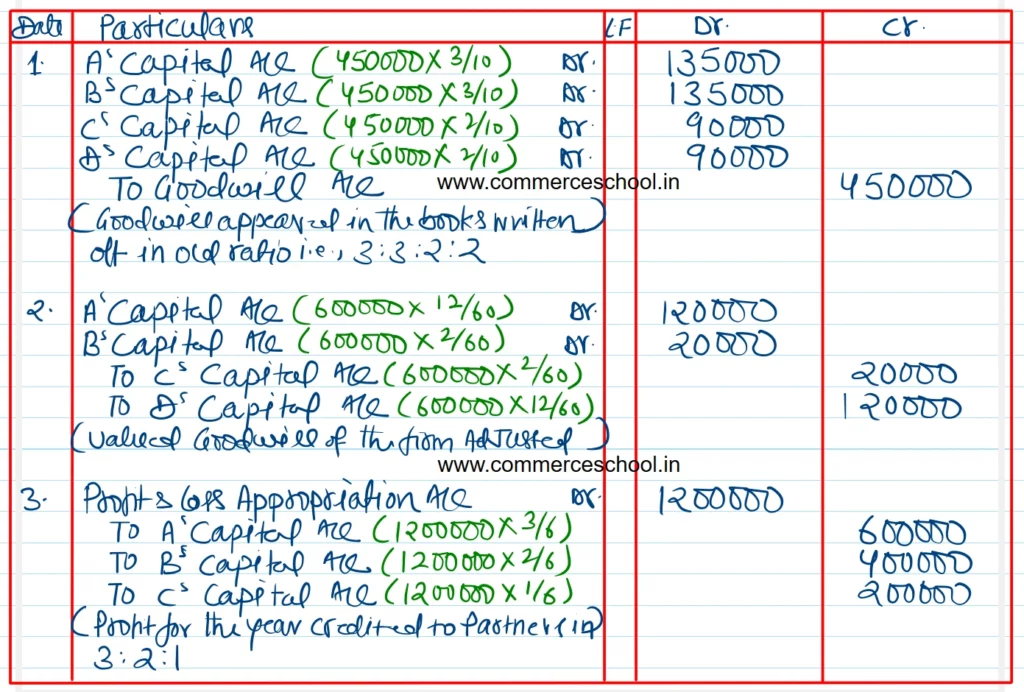 Date Particulars LF Dr. Cr.
1. A's Capital A/c (450000 X 3/10) Dr. 135000
B's Capital A/c (450000 X 3/10) Dr. 135000
C's Capital A/c (450000 X 2/10) Dr. 90000
D's Capital A/c (450000 X 2/10) Dr. 90000
To Goodwill A/c www.commerceschool.in 450000
(Goodwill appeared in the books written
off in old ratio i.e., 3:3:2:2
2. A's Capital A/c (600000 X 12/60) Dr. 120000
B's Capital A/c (600000 X 2/60) Dr. 20000
To C's Capital A/c (600000 X 2/60) 20000
To D's Capital A/c (600000 X 12/60) 120000
(Valued Goodwill of the firm Adjusted)
www.commerceschool.in
3. Profit & Loss Appropriation A/c Dr. 1200000
To A's Capital A/c (1200000 X 3/6) 600000
To B's Capital A/c (1200000 X 2/6) 400000
To C's Capital A/c (1200000 X 1/6) 200000
(Profit for the year credited to Partners in
3:2:1